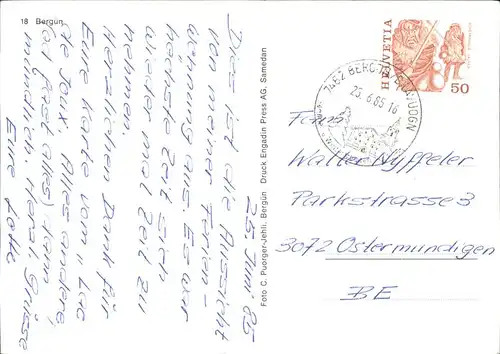 18 Bergün
25. Juni 85
Dies ist die Aussicht
von meiner Ferien-
wohnung aus. Es war
höchste Zeit sich
wieder mal Zeit zu
nehmen.
Herzlichen Dank für
Eure Karte vom "Lac
de Joux". Alles andere,
(od. fast alles) dann
mündlich. Herzl. Grüsse
Eure Lotte
Foto C. Puorger-Jehli, Bergün Druck Engadin Press AG, Samedan
HELVETIA
50
7482 BERGÜN
25.6.85 16
Walter Nyffeler
Parkstrasse 3
3072 Ostermundigen
BE